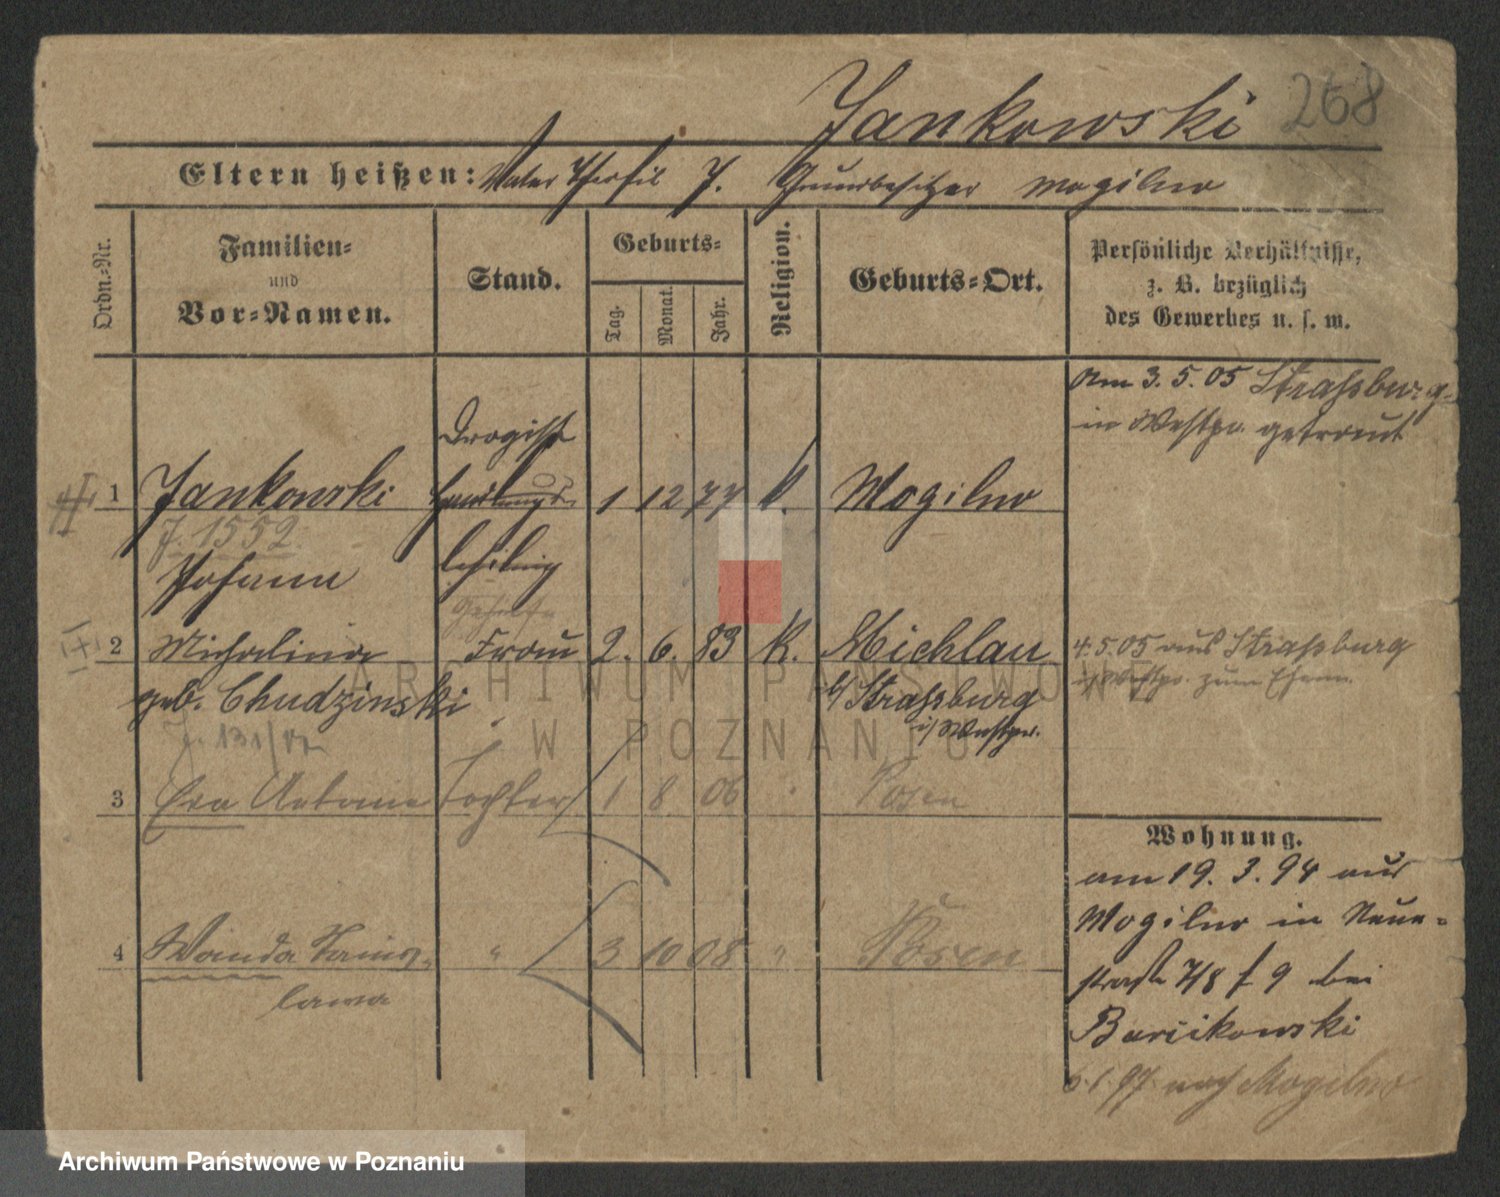 Jankowski 268
Eltern heißen: Vater Theofil J. Grundbesitzer Mogilno
Ordn.-Nr.
Familien-
und
Vor-Namen.
Stand.
Geburts-
Tag.
Monat.
Jahr.
Religion.
Geburts-Ort.
Persönliche Verhältnisse,
z. B. bezüglich
des Gewerbes u. s. w.
Am 3.5.05 Strassburg
in Westpr. getraut
Drogist
1 Jankowski 1 12 77 k. Mogilno
J. 1552
Johann
lehrling
Gehilfe
2 Michalina Frau 2. 6. 83 K. Michlau
geb. Chudzinski b/ Strassburg
i/ Westpr.
4.5.05 aus Strassburg
i/ Westpr. zum Ehem.
3 Eva Tochter 1 8 06 Posen
4 Wanda Stanis- " 3 10 08 " Posen
lawa
Wohnung.
am 19. 3. 94 aus
Mogilno in Neue-
strasse 7/8 f 9 bei
Barcikowski
6.1.97. nach Mogilno
ARCHIWUM PAŃSTWOWE
W POZNANIU
Archiwum Państwowe w Poznaniu